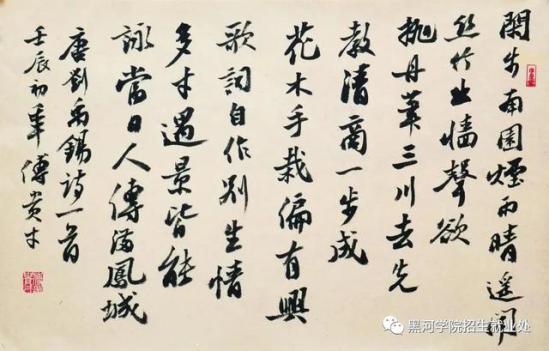 閑步南園煙雨晴遥闻
丝竹出墙聲欲
抛丹筆三川去先
教清商一步成
花木手栽偏有興
歌詞自作别生情
多才遇景皆能
詠當日人傳滿鳳城
唐劉禹錫詩一首
壬辰初 傅貴才
黑河学院招生就业处